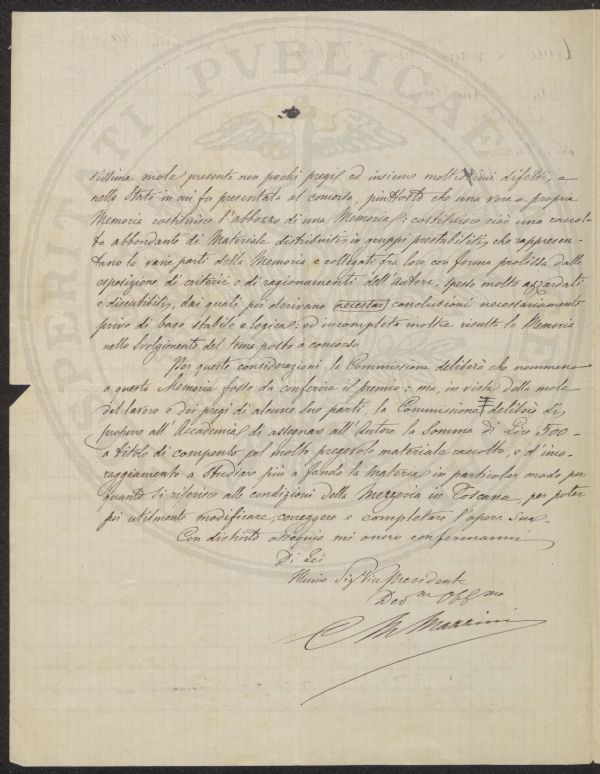 sissima mole presenta non pochi pregii ed insieme moltissimi difetti, e
nello Stato in cui fu presentata al concorso, piuttosto che una vera e propria
Memoria costituisce l'abbozzo di una Memoria; costituisce cioè una raccol-
ta abbondante di Materiale distribuito in gruppi prestabiliti, che rappresen-
tano le varie parti della Memoria e collegati tra loro con forma prolissa dalla
esposizione di criterii e di ragionamenti dell'autore, spesso molto azzardati
e discutibili, dai quali poi derivano necessar conclusioni necessariamente
prive di base stabile e logica: ed incompleta inoltre risulta la Memoria
nello svolgimento del tema posto a concorso.
Per queste considerazioni la Commissione deliberò che nemmeno
a questa Memoria fosse da conferire il premio: ma, in vista della mole
del lavoro e dei pregi di alcune sue parti, la Commissione deliberò di
proporre all'Accademia di assegnare all'Autore la somma di Lire 500-
a titolo di compenso pel molto pregevole materiale raccolto, e d'inco-
raggiamento a studiare più a fondo la materia in particolar modo per
quanto si riferisce alle condizioni della Mezzeria in Toscana, per poter
poi utilmente modificare, correggere e completare l'opera sua.
Con distinto ossequio mi onoro confermarmi
Di Lei
Illmo Sigr Vice Presidente
Devmo Obbmo
C M Mazzini
PROSPERITATI PVBLICAE